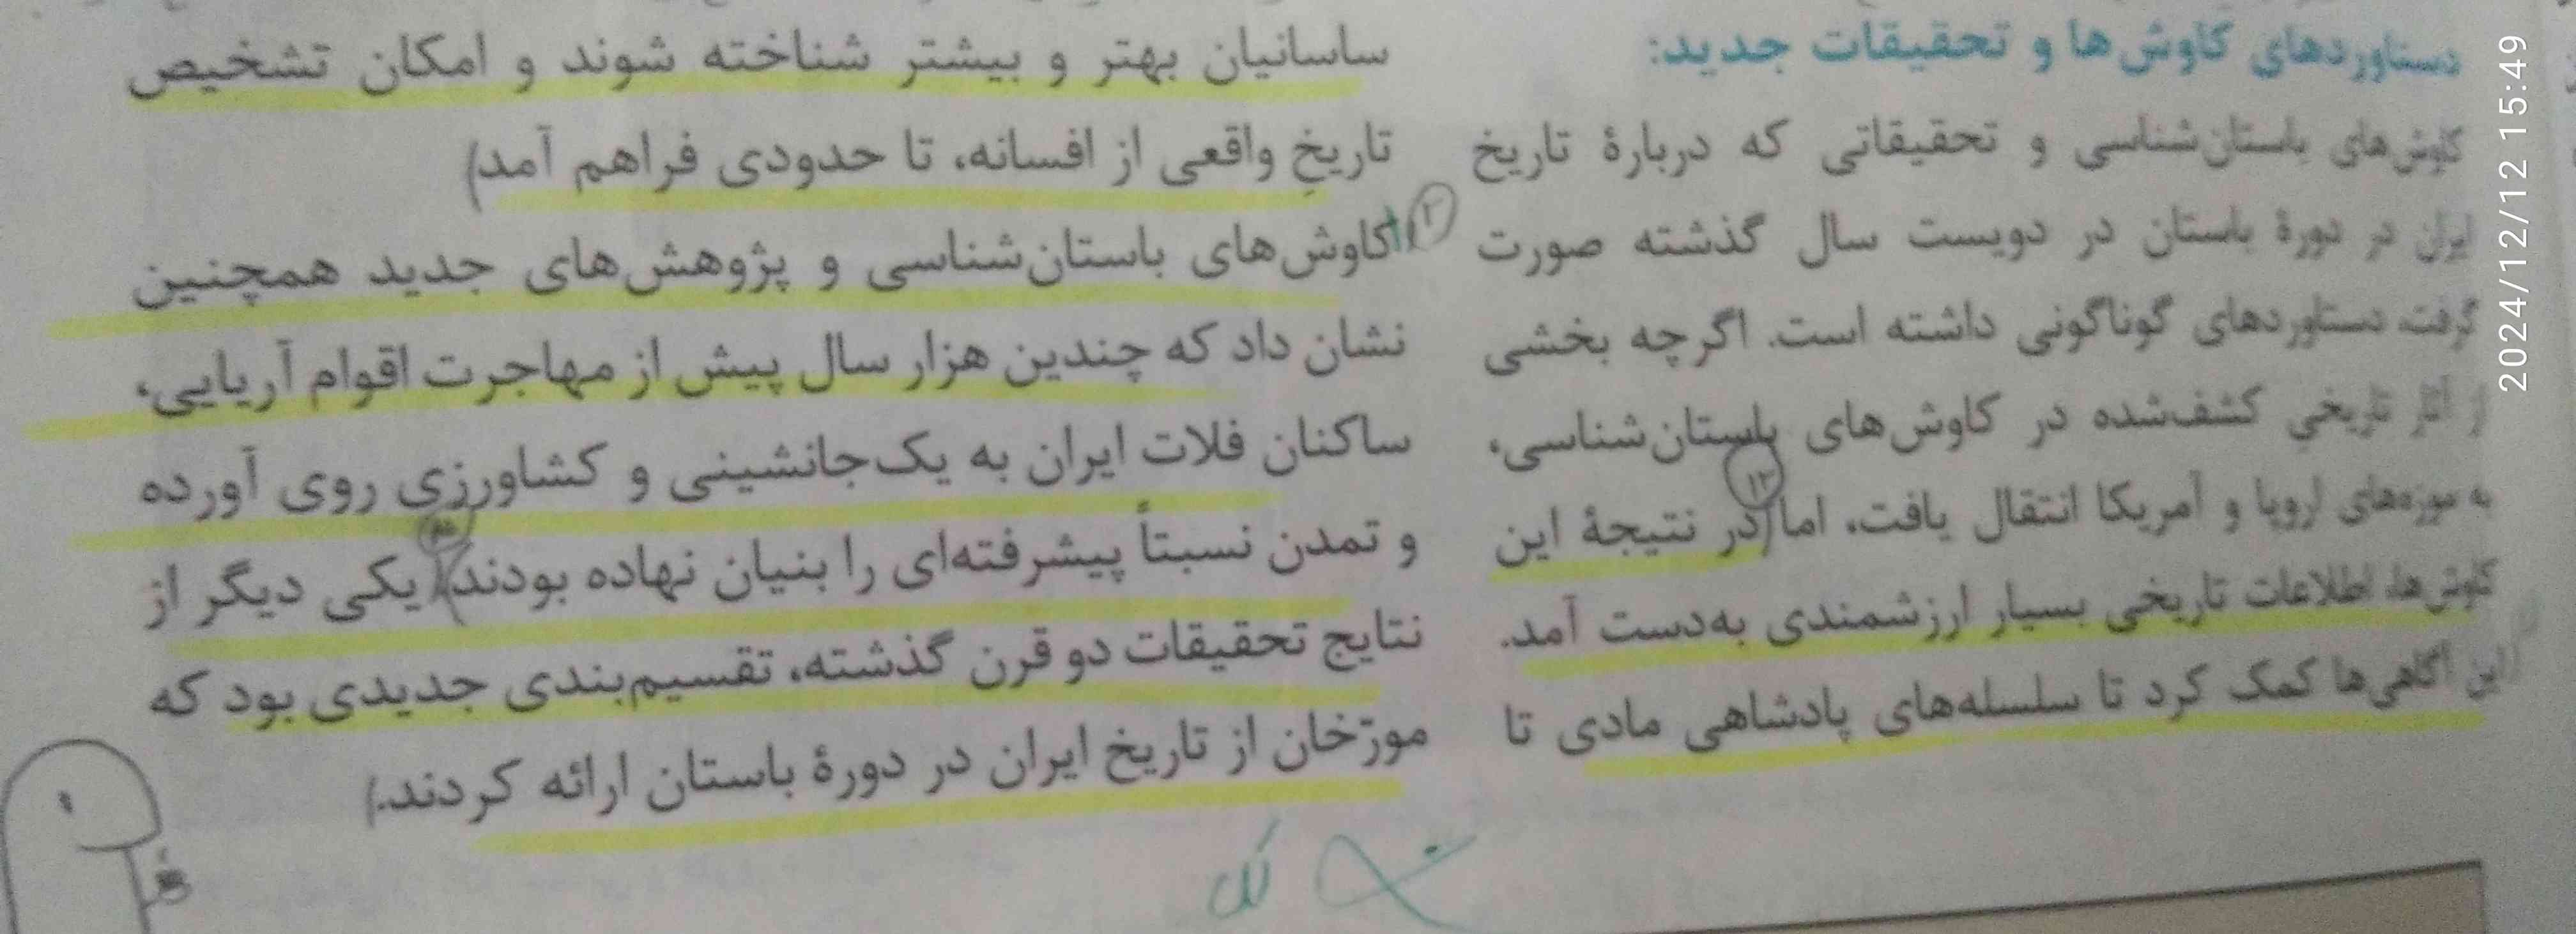 دستاوردهای کاوش‌ها و تحقیقات جدید:
کاوش‌های باستان‌شناسی و تحقیقاتی که دربارهٔ تاریخ
ایران در دورهٔ باستان در دویست سال گذشته صورت
گرفت، دستاوردهای گوناگونی داشته است. اگرچه بخشی
از آثار تاریخیِ کشف‌شده در کاوش‌های باستان‌شناسی،
به موزه‌های اروپا و آمریکا انتقال یافت، اما در نتیجهٔ این
کاوش‌ها، اطلاعات تاریخی بسیار ارزشمندی به‌دست آمد.
این آگاهی‌ها کمک کرد تا سلسله‌های پادشاهی مادی تا
ساسانیان بهتر و بیشتر شناخته شوند و امکان تشخیص
تاریخِ واقعی از افسانه، تا حدودی فراهم آمد)
۲
کاوش‌های باستان‌شناسی و پژوهش‌های جدید همچنین
نشان داد که چندین هزار سال پیش از مهاجرت اقوام آریایی،
ساکنان فلات ایران به یک‌جانشینی و کشاورزی روی آورده
و تمدن نسبتاً پیشرفته‌ای را بنیان نهاده بودند) یکی دیگر از
نتایج تحقیقات دو قرن گذشته، تقسیم‌بندی جدیدی بود که
مورّخان از تاریخ ایران در دورهٔ باستان ارائه کردند.)
2024/12/12 15:49